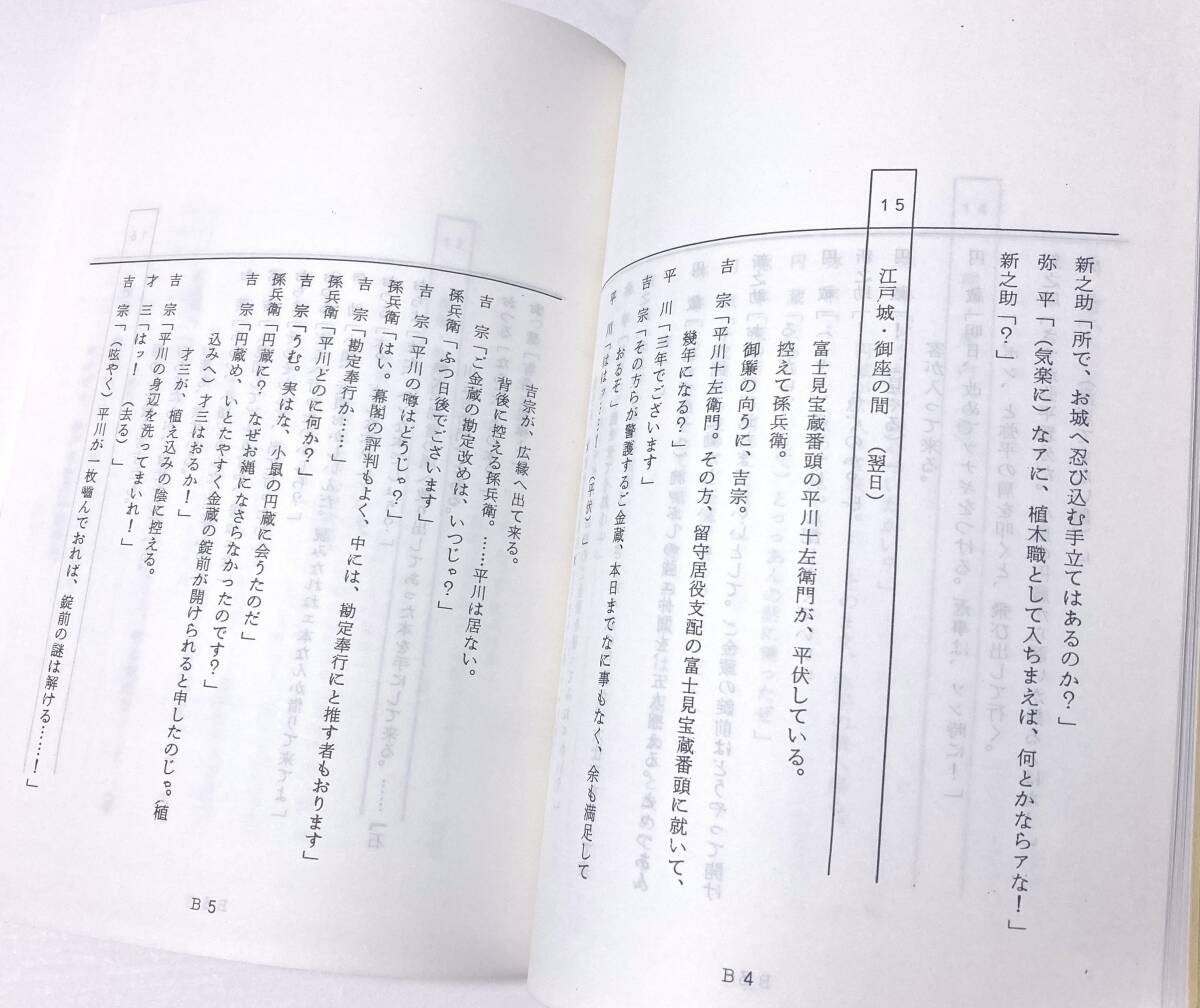 新之助「所で、お城へ忍び込む手立てはあるのか？」
弥　平「（気楽に）なアに、植木職として入ちまえば、何とかならァな！」
新之助「？」
15
江戸城・御座の間　　（翌日）
富士見宝蔵番頭の平川十左衛門が、平伏している。
控えて孫兵衛。
御簾の向うに、吉宗。
吉　宗「平川十左衛門。その方、留守居役支配の富士見宝蔵番頭に就いて、
幾年になる？」
平　川「三年でございます」
吉　宗「その方らが警護するご金蔵、本日までなに事もなく、余も満足して
おるぞ」
平　川「ははッ
（平伏）」
B4
吉宗が、広縁へ出て来る。
背後に控える孫兵衛。……平川は居ない。
吉　宗「ご金蔵の勘定改めは、いつじゃ？」
孫兵衛「ふつ日後でございます」
吉　宗「平川の噂はどうじゃ？」
孫兵衛「はい。幕閣の評判もよく、中には、勘定奉行にと推す者もおります」
吉　宗「勘定奉行か……」
孫兵衛「平川どのに何か？」
吉　宗「うむ。実はな、小鼠の円蔵に会うたのだ」
孫兵衛「円蔵に？　なぜお縄になさらなかったのです？」
吉　宗「円蔵め、いとたやすく金蔵の錠前が開けられると申したのじゃ。（植
込みへ）才三はおるか！」
才三が、植え込みの陰に控える。
吉　宗「平川の身辺を洗ってまいれ！」
才　三「はッ！　（去る）」
吉　宗「（呟やく）平川が一枚嚙んでおれば、錠前の謎は解ける……！」
B5